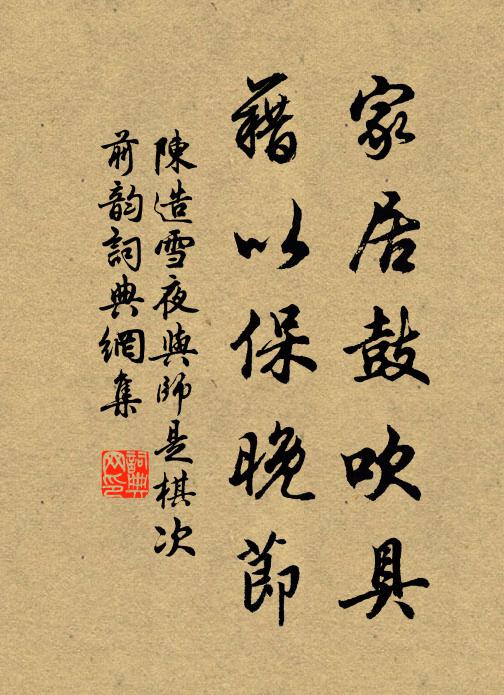 家居鼓吹具
藉以保晚節
陳造雪夜與師是棋次
前韵詞典網集
詞典
网印